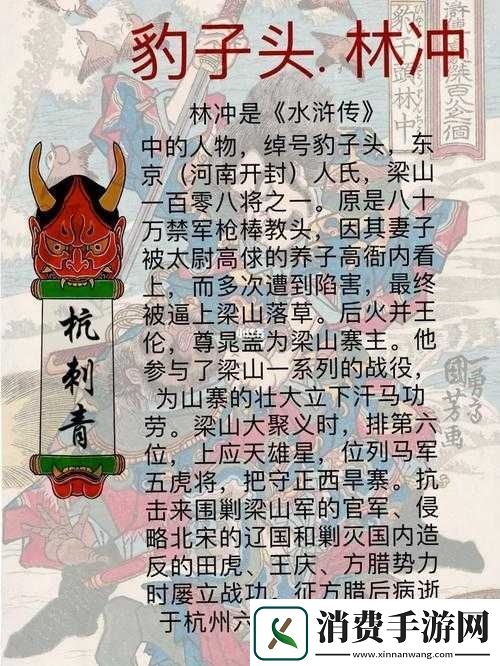 豹子头.林冲
林冲是《水浒传》
中的人物，绰号豹子头，东
京（河南开封）人氏，梁山
一百零八将之一。原是八十
万禁军枪棒教头，因其妻子
被太尉高俅的养子高衙内看
上，而多次遭到陷害，最终
被逼上梁山落草。后火并王
伦，尊晁盖为梁山寨主。他
参与了梁山一系列的战役，
为山寨的壮大立下汗马功
劳。梁山大聚义时，排第六
位，上应天雄星，位列马军
五虎将，把守正西旱寨。抗
击来围剿梁山军的官军、侵
略北宋的辽国和剿灭国内造
反的田虎、王庆、方腊势力
时屡立战功。征方腊后病逝
于杭州六
杭刺青
豹子頭林冲
一勇斎
国芳画
消费手游网
www.xinnanwang.com